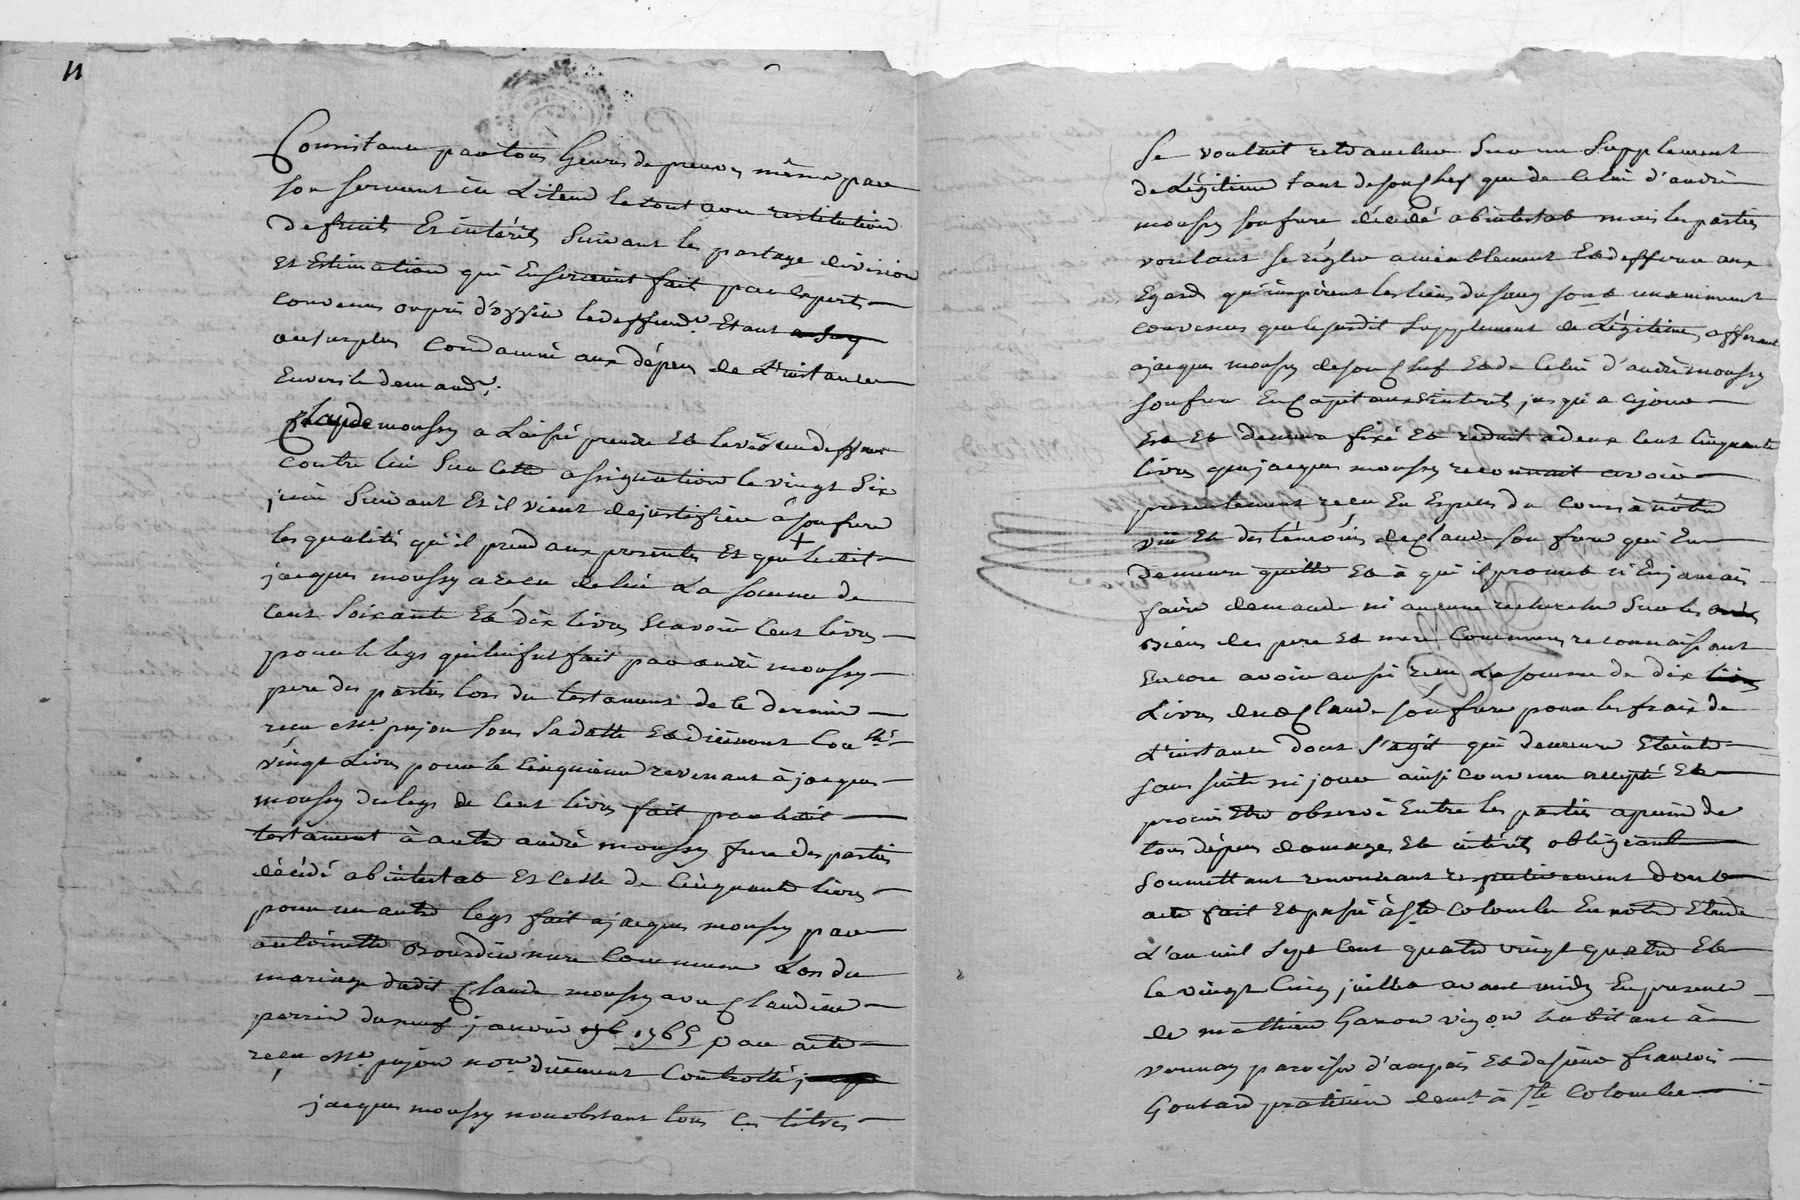 11
Consistance par tous genres de preuves même par
son serment in Litem le tout avec restitution
de fruits Et intérêts suivant les partage division
Et Estimation qui En seroient fait par Experts
convenus ou pris d'office led. deffend.r Etant
au surplus condamné aux dépens de L'instance
Envers le demand.r.
Claude moussy a Laissé prendre Et lever un deffaut
contre lui sur cette assignation le vingt six
juin suivant Et il vient de justiffier à son frere
les qualités qu'il prend aux presentes Et que ledit
jacques moussy a reçu de lui La somme de
cent soixante Et dix livres scavoir cent livres
pour le legs qui lui fut fait par andré moussy
pere des parties lors du testament de ce dernier
reçu Me. pujon sous sa datte Et düement con.llé
vingt Livres pour le cinquieme revenant à jacques
moussy du legs de cent livres fait par ledit
testament à autre andré moussy frere des parties
décédé abintestat Et celle de cinquante livres
pour un autre legs fait a jacques moussy par
antoinette Bourdin mere commune Lors du
mariage dudit Claude moussy avec Claudine
perrin du neuf janvier 1765 par acte
reçu Me. pujon no.re düement controllé
jacques moussy nonobstant tous ces titres
se vouloit retrancher sur un supplement
de Légitime tant de son chef que de celui d'andré
moussy son frere décédé abintestat mais les parties
voulant se régler amiablement Et defferer aux
Egards qu'inspirent les liens du sang sont unanimement
convenus que le susdit supplement de Légitime afferant
a jacques moussy de son chef Et de celui d'andré moussy
son frere En capitaux Et interets jusqu'a ce jour
Est Et demeure fixé Et reduit a deux cent cinquante
livres que jacques moussy reconnait avoir
presentement reçu En Especes du cours à nôtre
vüe Et des témoins de Claude son frere qui En
demeure quitte Et à qui il promet n'En jamais
faire demande ni aucune recherche sur les
Biens des pere Et mere communs reconnaissant
Encore avoir aussi reçu La somme de dix
Livres dud. Claude son frere pour les fraix de
L'instance dont s'agit qui demeure Eteinte
sans suite ni jour ainsi convenu accepté Et
promis Etre observé Entre les parties a peine de
tous dépens domages Et intérêts obligeant
soumettant renonceant respectivement dont
acte fait Et passé à Ste Colombe En notre Etude
L'an mil sept cent quatre vingt quatre Et
le vingt cinq juillet avant midy En presence
de mathieu Garon vigon habitant à
vernay paroisse d'ampuis Et de sieur francois
Goutard praticien demt. à Ste Colombe